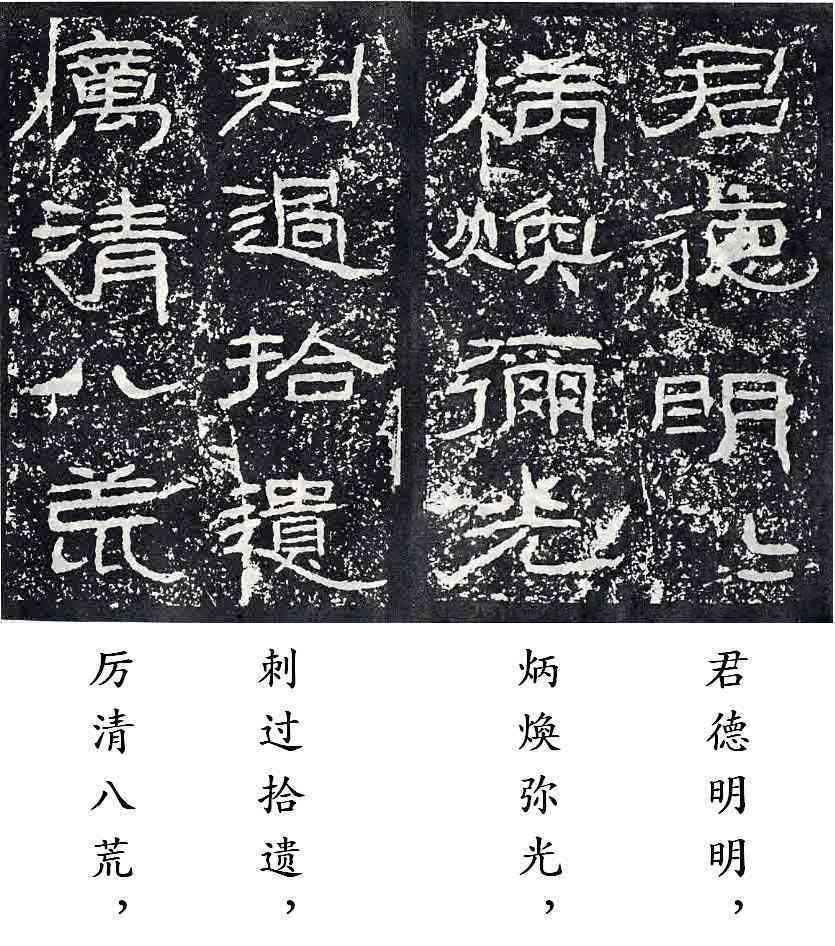 君德明〻
炳煥彌光
刺過拾遺
厲清八荒
君德明明，
炳煥弥光，
刺过拾遗，
厉清八荒，